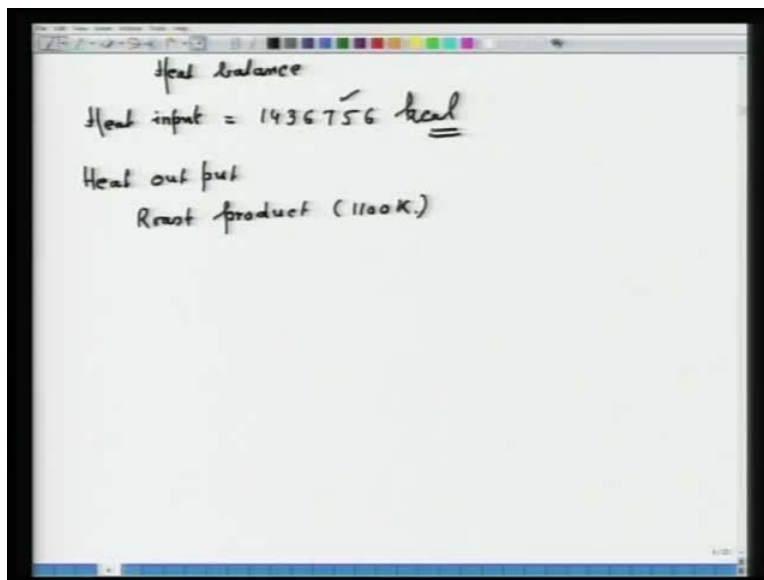 Heat balance
Heat input = 1436756 kcal
Heat out put
Roast product (1100K.)